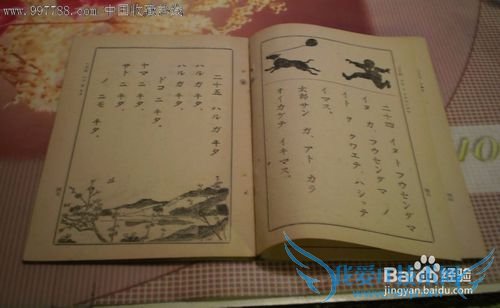 www.997788.com 中国收藏热线
二十四 イヌ ト フウセンダマ
イヌ ガ、フウセンダマ ノ
イト ヲ クワエテ、ハシッテ
イマス。
太郎サン ガ、アト カラ
オイカケテ イキマス。
二十五 ハルガ キタ
ハルガ キタ、
ハルガ キタ、
ドコニ キタ。
ヤマニ キタ、
サトニ キタ、
ノ ニモ キタ。
Baidu 经验
jingyan.baidu.com